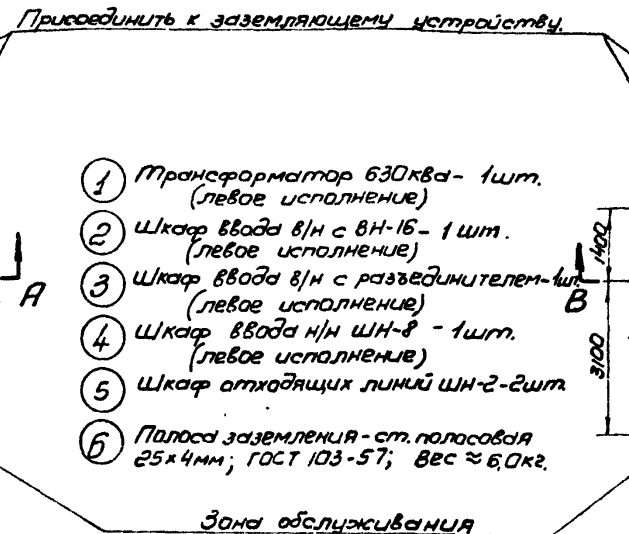 Присоединить к заземляющему устройству.
1 Трансформатор 630ква - 1шт.
(левое исполнение)
2 Шкаф ввода в/н с ВН-16 - 1 шт.
(левое исполнение)
3 Шкаф ввода в/н с разъединителем - 1шт.
(левое исполнение)
4 Шкаф ввода н/н ШН-8 - 1шт.
(левое исполнение)
5 Шкаф отходящих линий ШН-2-2шт
6 Полоса заземления - ст. полосовая
25×4мм; ГОСТ 103-57; Вес ≈ 6,0кг.
A
B
1400
3100
Зона обслуживания